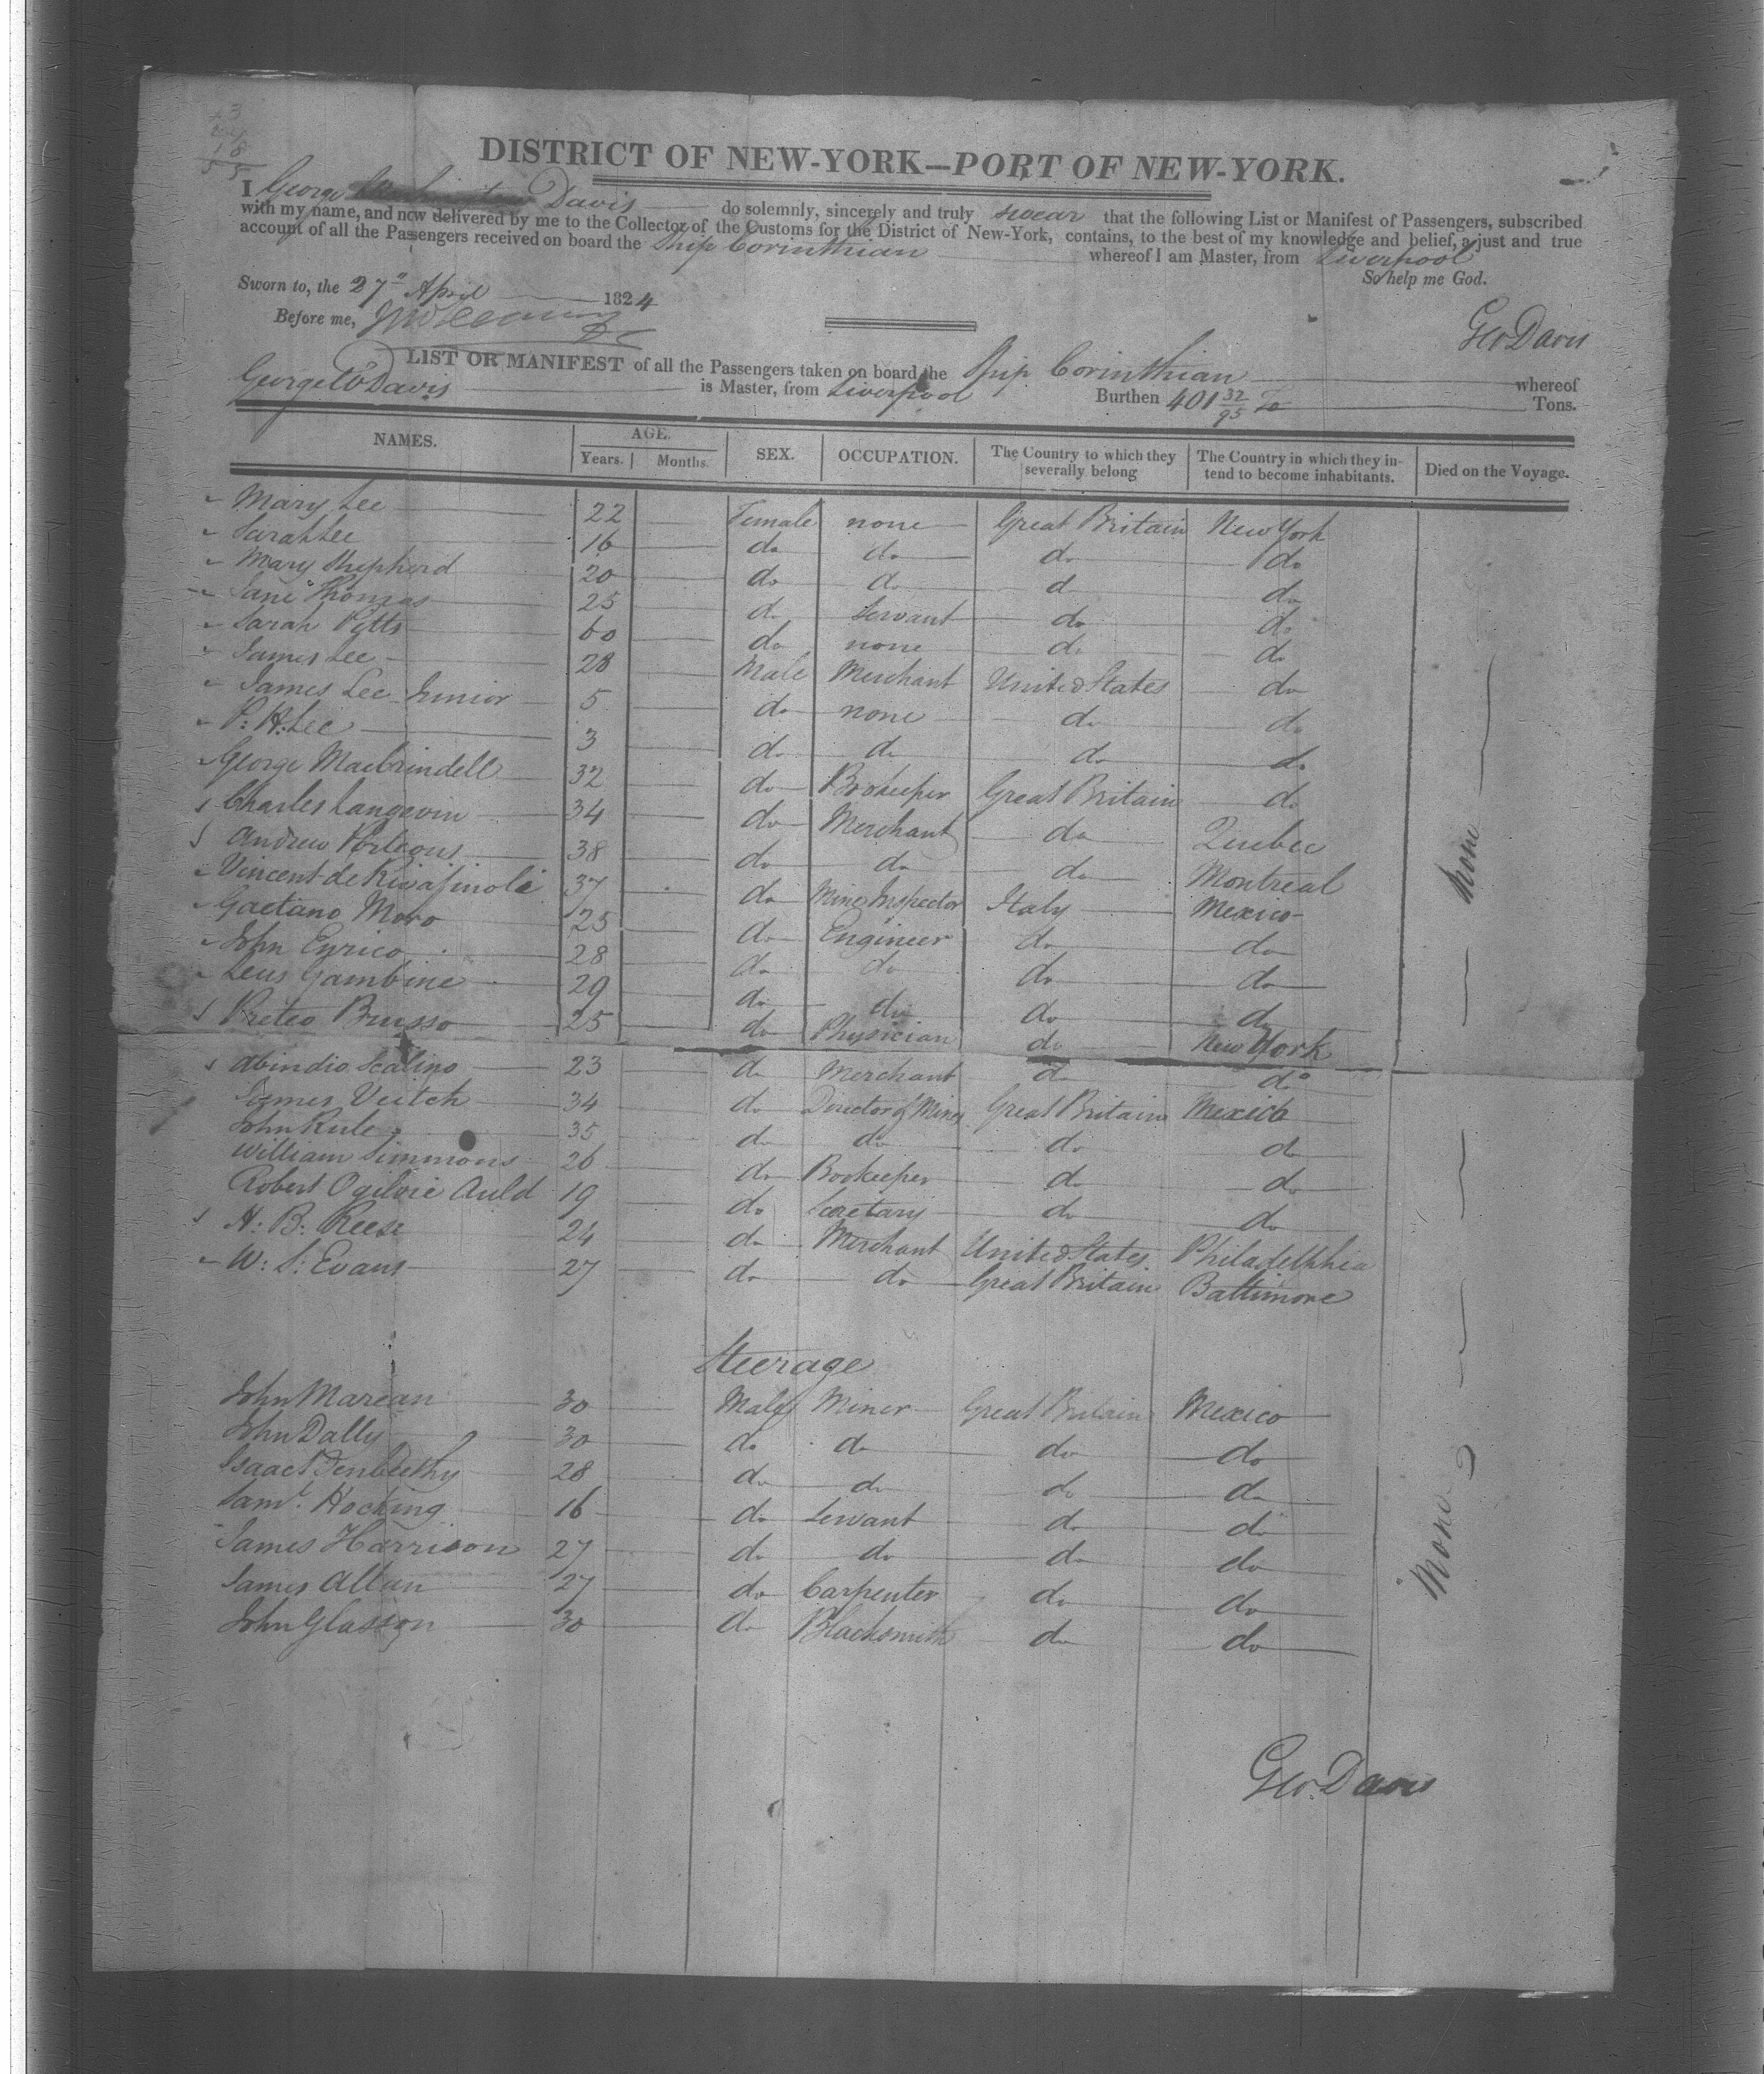 DISTRICT OF NEW-YORK—PORT OF NEW-YORK.
I George Davis do solemnly, sincerely and truly swear that the following List or Manifest of Passengers, subscribed
with my name, and now delivered by me to the Collector of the Customs for the District of New-York, contains, to the best of my knowledge and belief, a just and true
account of all the Passengers received on board the Ship Corinthian whereof I am Master, from Liverpool
So help me God.
Sworn to, the 27" April 1824
Before me,
Geo Davis
LIST OR MANIFEST of all the Passengers taken on board the Ship Corinthian whereof
George W Davis is Master, from Liverpool Burthen 401 32/95 Tons.
NAMES. AGE. Years. Months. SEX. OCCUPATION. The Country to which they severally belong The Country in which they intend to become inhabitants. Died on the Voyage.
Mary Lee 22 Female none Great Britain New York
Sarah Lee 16 do do do do
Mary Shepherd 20 do do do do
Jane Thomas 25 do Servant do do
Sarah Pitts 60 do none do do
James Lee 28 Male Merchant United States do
James Lee Junior 5 do none do do
P: H: Lee 3 do do do do
George Macbrindell 32 do Bookeeper Great Britain do
Charles Langevin 34 do Merchant do Quebec
Andrew Porteous 38 do do do Montreal
Vincent de 37 do Mines Inspector Italy Mexico
Gaetano Moro 25 do Engineer do do
John Enrico 28 do do do do
Leus Gambine 29 do do do do
Preteo Brusso 25 do Physician do New York
Abindio Scalino 23 do Merchant do do
James Veitch 34 do Director of Mines Great Britain Mexico
John Rule 35 do do do do
William Simmons 26 do Bookeeper do do
Robert Ogilvie Auld 19 do Secretary do do
H: B: Reese 24 do Merchant United States Philadelphia
W: S: Evans 27 do do Great Britain Baltimore
None
Steerage
John Marean 30 Male Miner Great Britain Mexico
John Dally 30 do do do do
Isaac Penberthy 28 do do do do
Saml. Hocking 16 do Servant do do
James Harrison 27 do do do do
James Allan 27 do Carpenter do do
John Glasson 30 do Blacksmith do do
None
Geo. Davis